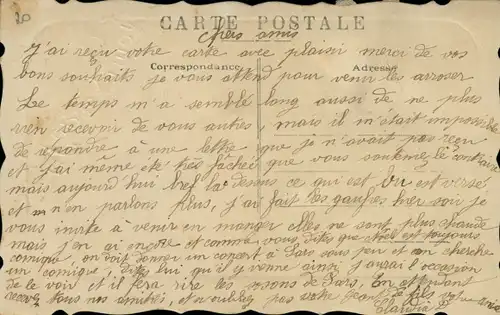 20
CARTE POSTALE
chers amis
J'ai reçu votre carte avec plaisir merci de vos
bons souhaits je vous attend pour venir les arroser
Correspondance Adresse
Le temps m'a semblé long aussi de ne plus
rien recevoir de vous autres, mais il m'était impossible
de repondre à une lettre que je n'avait pas reçu
et j'ai même été très fâchée que vous souteniez le contraire
mais aujourd hui bref la dessus ce qui est bu est versé
et n'en parlons plus, J'ai fait les gaufres hier soir je
vous invite à venir en manger elles ne sont plus chaude
mais j'en ai encore et comme vous dites que est toujours
comique, on doit donner un concert à Sars sous peu et on cherche
un comique, dites lui qu'il y vienne ainsi j'aurai l'occasion
de le voir et il fera rire les de Sars. En attendant
recevez tous nos amitiés, et n'oubliez pas votre de fils votre amie
Claudia